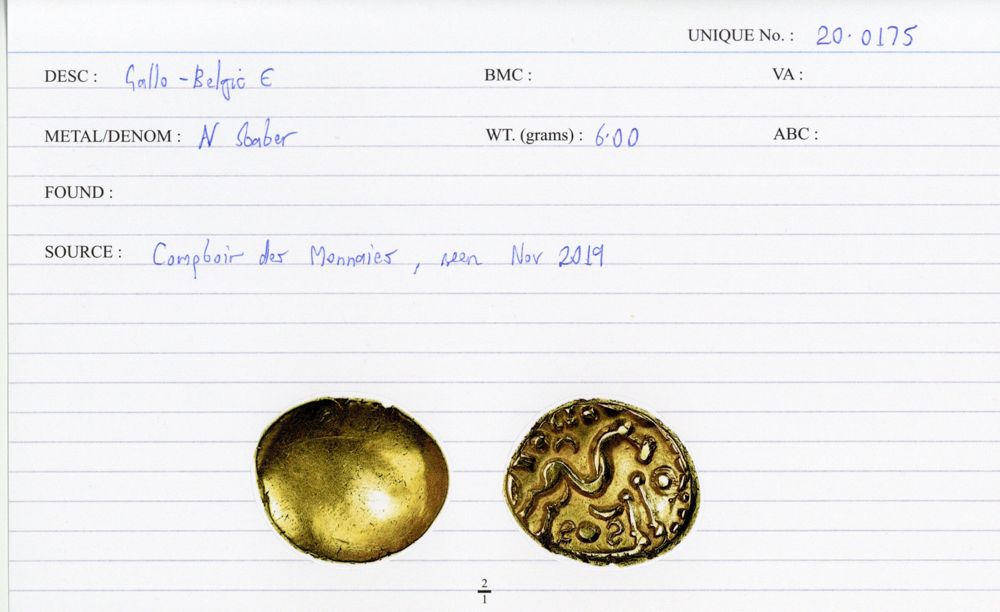 UNIQUE No. : 20.0175
DESC : Gallo-Belgic E BMC : VA :
METAL/DENOM : N Stater WT. (grams) : 6.00 ABC :
FOUND :
SOURCE : Comptoir des Monnaies, seen Nov 2019
2
1